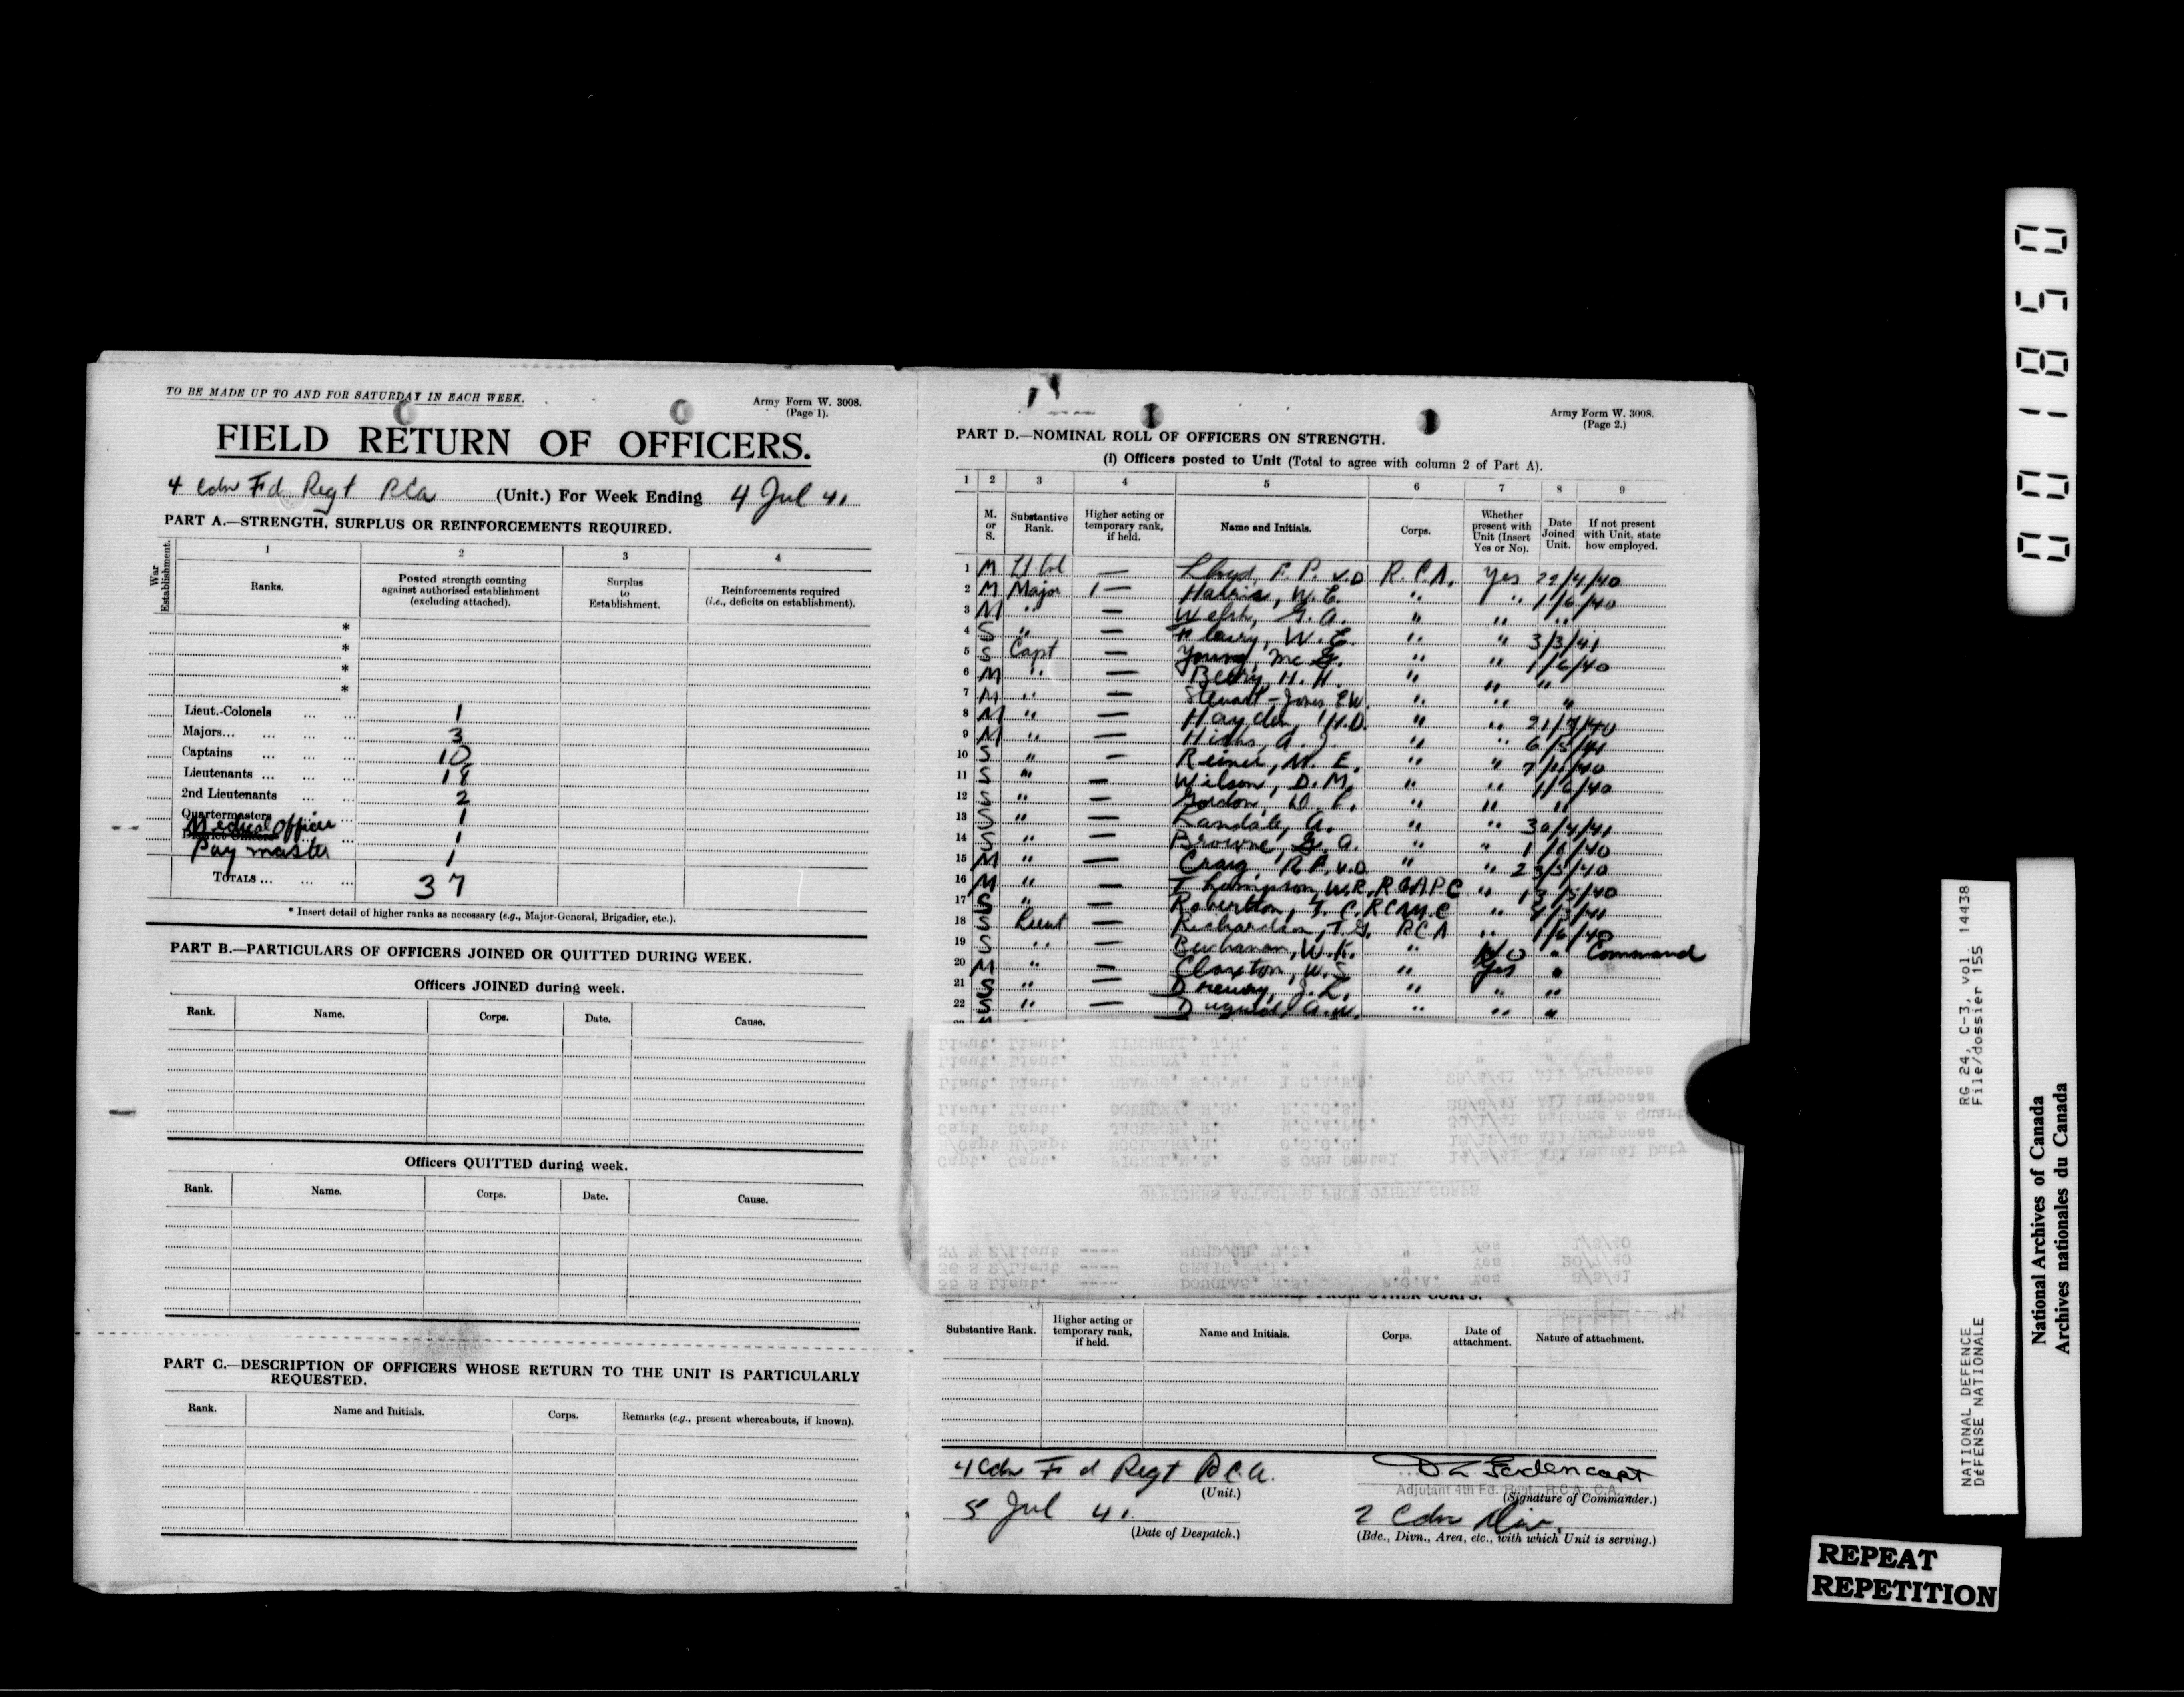 TO BE MADE UP TO AND FOR SATURDAY IN EACH WEEK.
Army Form W. 3008.
(Page 1).
FIELD RETURN OF OFFICERS.
4 Cdn Fd Regt RCA (Unit.) For Week Ending 4 Jul 41
PART A.—STRENGTH, SURPLUS OR REINFORCEMENTS REQUIRED.
War Establishment.
1 2 3 4
Ranks.
Posted strength counting against authorised establishment (excluding attached).
Surplus to Establishment.
Reinforcements required (i.e., deficits on establishment).
*
*
*
*
Lieut.-Colonels ... ... 1
Majors... ... ... ... 3
Captains ... ... ... 10
Lieutenants ... ... ... 18
2nd Lieutenants ... ... 2
Quartermasters ... 1
Medical Officer ... 1
Pay master 1
TOTALS ... ... ... 37
* Insert detail of higher ranks as necessary (e.g., Major-General, Brigadier, etc.).
PART B.—PARTICULARS OF OFFICERS JOINED OR QUITTED DURING WEEK.
Officers JOINED during week.
Rank. Name. Corps. Date. Cause.
Officers QUITTED during week.
Rank. Name. Corps. Date. Cause.
PART C.—DESCRIPTION OF OFFICERS WHOSE RETURN TO THE UNIT IS PARTICULARLY
REQUESTED.
Rank. Name and Initials. Corps. Remarks (e.g., present whereabouts, if known).
Army Form W. 3008.
(Page 2.)
PART D.—NOMINAL ROLL OF OFFICERS ON STRENGTH.
(i) Officers posted to Unit (Total to agree with column 2 of Part A).
1 2 3 4 5 6 7 8 9
M. or S.
Substantive Rank.
Higher acting or temporary rank, if held.
Name and Initials.
Corps.
Whether present with Unit (Insert Yes or No).
Date Joined Unit.
If not present with Unit, state how employed.
1 M Lt Col — Lloyd, F. P. V.D R.C.A. Yes 22/4/40
2 M Major — Harris, W. E. " " 1/6/40
3 M " — Welsh, G. A. " " "
4 S " — W. E. " " 3/3/41
5 S Capt — Young, Mc G. " " 1/6/40
6 M " — Berry, H. H. " " "
7 M " — Stewart-Jones E.W. " " "
8 M " — Hayden, H.D. " " 21/
9 M " — A. J. " "
10 S " — W. E. " "
11 S " — Wilson, D. M. " " 1/6/40
12 S " — Gordon, D. L. " " "
13 S " — Landale, A. " " 30/4/41
14 S " — Browne, G. A. " " 1/6/40
15 M " — Craig, R.P. V.D " " 23/5/40
16 M " — Thompson, W.R. RCAPC "
17 S " — Robertson, T. C. RCAMC "
18 S Lieut — Richardson, T. G. RCA " 1/6/40
19 S " — Buchanan, W. K. " No " Command
20 M " — Claxton, W. S " Yes "
21 S " — Drewry, J. L. " " "
22 S " — Duguid, A.W. " " "
Lieut. Lieut. MITCHELL, J.H. " " "
Lieut. Lieut. KENNEDY, H.I. " " "
Lieut. Lieut. All Purposes
Lieut. Lieut. R.C.C.S. 28/6/41 All Purposes
Capt Capt JACKSON, R.
H/Capt H/Capt MCCLEARY, H. C.C.S. All Purposes
Capt. Capt. 2 Cdn Dental All Dental Duty
OFFICERS ATTACHED FROM OTHER CORPS
37 M 2/Lieut ---- MURDOCH, " Yes 1/6/40
36 S 2/Lieut ---- CRAIG, " Yes
35 S Lieut. ---- DOUGLAS, R.C.A. Yes
FROM OTHER CORPS.
Substantive Rank.
Higher acting or temporary rank, if held.
Name and Initials.
Corps.
Date of attachment.
Nature of attachment.
4 Cdn Fd Regt R.C.A.
(Unit.)
5 Jul 41.
(Date of Despatch.)
Capt
Adjutant 4th Fd. Regt., R.C.A., C.A.
(Signature of Commander.)
2 Cdn Div.
(Bde., Divn., Area, etc., with which Unit is serving.)
001850
RG 24, C-3, vol. 14438
File/dossier 155
NATIONAL DEFENCE
DÉFENSE NATIONALE
National Archives of Canada
Archives nationales du Canada
REPEAT
REPETITION